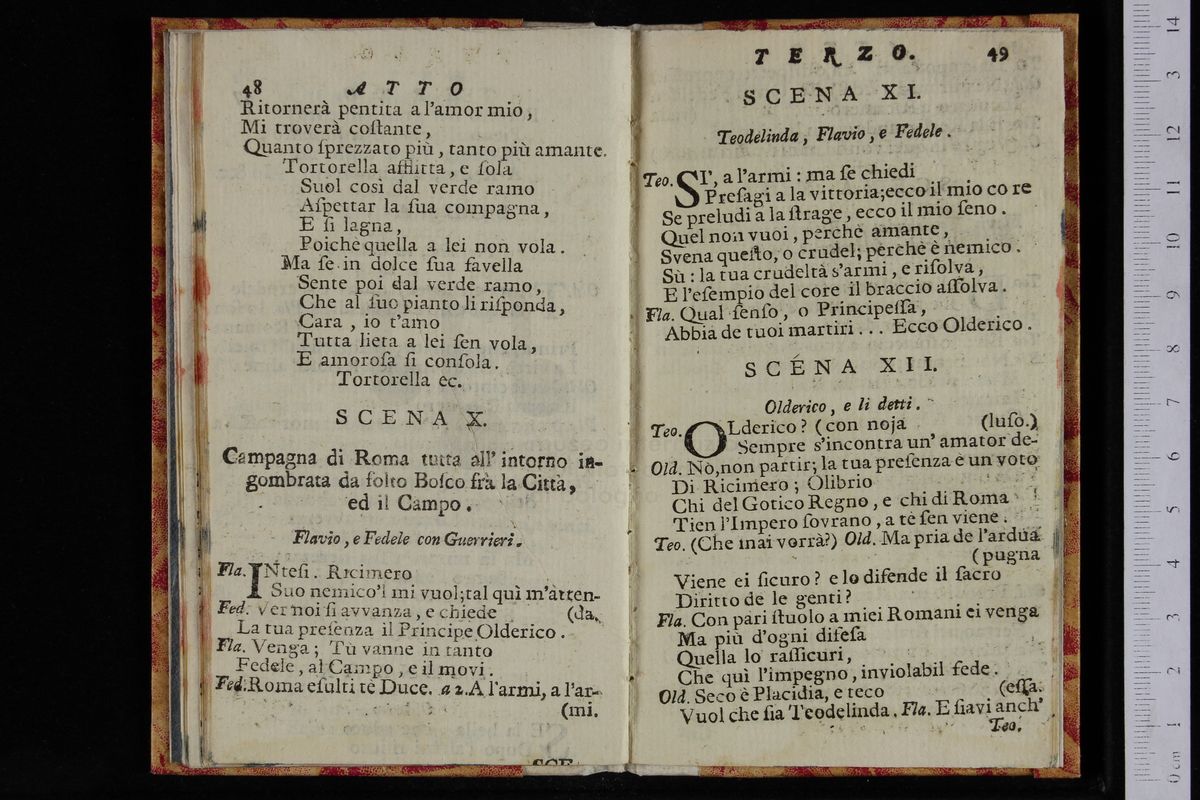 48 ATTO
Ritornerà pentita a l'amor mio,
Mi troverà coſtante,
Quanto ſprezzato più, tanto più amante.
Tortorella afflitta, e ſola
Suol così dal verde ramo
Aſpettar la ſua compagna,
E ſi lagna,
Poichè quella a lei non vola.
Ma ſe in dolce ſua favella
Sente poi dal verde ramo,
Che al ſuo pianto li riſponda,
Cara, io t'amo
Tutta lieta a lei ſen vola,
E amoroſa ſi conſola.
Tortorella ec.
SCENA X.
Campagna di Roma tutta all' intorno in-
gombrata da folto Boſco frà la Città,
ed il Campo.
Flavio, e Fedele con Guerrieri.
Fla. INteſi. Ricimero
Suo nemico'l mi vuol; tal quì m'atten-
Fed. Ver noi ſi avvanza, e chiede (da.
La tua preſenza il Principe Olderico.
Fla. Venga; Tù vanne in tanto
Fedele, al Campo, e il movi.
Fed. Roma eſulti tè Duce. a 2. A l'armi, a l'ar-
(mi.
SCE-
TERZO. 49
SCENA XI.
Teodelinda, Flavio, e Fedele.
Teo. SI', a l'armi: ma ſe chiedi
Preſagi a la vittoria; ecco il mio co re
Se preludi a la ſtrage, ecco il mio ſeno.
Quel non vuoi, perchè amante,
Svena queſto, o crudel; perchè è nemico.
Sù: la tua crudeltà s'armi, e riſolva,
E l'eſempio del core il braccio aſſolva.
Fla. Qual ſenſo, o Principeſſa,
Abbia de tuoi martiri... Ecco Olderico.
SCENA XII.
Olderico, e li detti.
Teo. OLderico? (con noja (luſo.)
Sempre s'incontra un' amator de-
Old. Nò, non partir; la tua preſenza è un voto
Di Ricimero; Olibrio
Chi del Gotico Regno, e chi di Roma
Tien l'Impero ſovrano, a tè ſen viene.
Teo. (Che mai vorrà?) Old. Ma pria de l'ardua
(pugna
Viene ei ſicuro? e lo difende il ſacro
Diritto de le genti?
Fla. Con pari ſtuolo a miei Romani ei venga
Ma più d'ogni difeſa
Quella lo raſſicuri,
Che quì l'impegno, inviolabil fede.
Old. Seco è Placidia, e teco (eſſa.
Vuol che ſia Teodelinda. Fla. E ſiavi anch'
Teo.